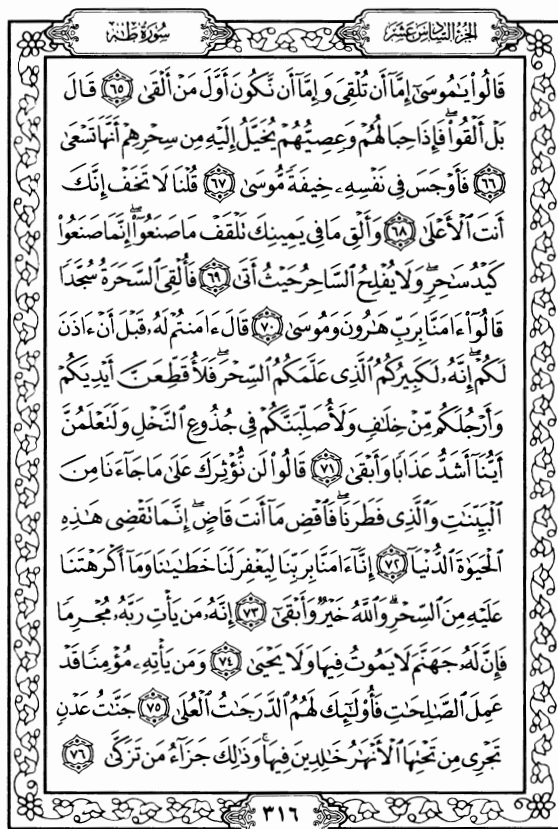 سُورَةُ طه
الجُزْءُ السَّادِسَ عَشَرَ
قَالُوا۟ يَٰمُوسَىٰٓ إِمَّآ أَن تُلْقِىَ وَإِمَّآ أَن نَّكُونَ أَوَّلَ مَنْ أَلْقَىٰ ٦٥ قَالَ
بَلْ أَلْقُوا۟ۖ فَإِذَا حِبَالُهُمْ وَعِصِيُّهُمْ يُخَيَّلُ إِلَيْهِ مِن سِحْرِهِمْ أَنَّهَا تَسْعَىٰ
٦٦ فَأَوْجَسَ فِى نَفْسِهِۦ خِيفَةً مُّوسَىٰ ٦٧ قُلْنَا لَا تَخَفْ إِنَّكَ
أَنتَ ٱلْأَعْلَىٰ ٦٨ وَأَلْقِ مَا فِى يَمِينِكَ تَلْقَفْ مَا صَنَعُوٓا۟ۖ إِنَّمَا صَنَعُوا۟
كَيْدُ سَٰحِرٍۖ وَلَا يُفْلِحُ ٱلسَّاحِرُ حَيْثُ أَتَىٰ ٦٩ فَأُلْقِىَ ٱلسَّحَرَةُ سُجَّدًا
قَالُوٓا۟ ءَامَنَّا بِرَبِّ هَٰرُونَ وَمُوسَىٰ ٧٠ قَالَ ءَامَنتُمْ لَهُۥ قَبْلَ أَنْ ءَاذَنَ
لَكُمْۖ إِنَّهُۥ لَكَبِيرُكُمُ ٱلَّذِى عَلَّمَكُمُ ٱلسِّحْرَۖ فَلَأُقَطِّعَنَّ أَيْدِيَكُمْ
وَأَرْجُلَكُم مِّنْ خِلَٰفٍ وَلَأُصَلِّبَنَّكُمْ فِى جُذُوعِ ٱلنَّخْلِ وَلَتَعْلَمُنَّ
أَيُّنَآ أَشَدُّ عَذَابًا وَأَبْقَىٰ ٧١ قَالُوا۟ لَن نُّؤْثِرَكَ عَلَىٰ مَا جَآءَنَا مِنَ
ٱلْبَيِّنَٰتِ وَٱلَّذِى فَطَرَنَاۖ فَٱقْضِ مَآ أَنتَ قَاضٍۖ إِنَّمَا تَقْضِى هَٰذِهِ
ٱلْحَيَوٰةَ ٱلدُّنْيَآ ٧٢ إِنَّآ ءَامَنَّا بِرَبِّنَا لِيَغْفِرَ لَنَا خَطَٰيَٰنَا وَمَآ أَكْرَهْتَنَا
عَلَيْهِ مِنَ ٱلسِّحْرِۗ وَٱللَّهُ خَيْرٌ وَأَبْقَىٰٓ ٧٣ إِنَّهُۥ مَن يَأْتِ رَبَّهُۥ مُجْرِمًا
فَإِنَّ لَهُۥ جَهَنَّمَ لَا يَمُوتُ فِيهَا وَلَا يَحْيَىٰ ٧٤ وَمَن يَأْتِهِۦ مُؤْمِنًا قَدْ
عَمِلَ ٱلصَّٰلِحَٰتِ فَأُو۟لَٰٓئِكَ لَهُمُ ٱلدَّرَجَٰتُ ٱلْعُلَىٰ ٧٥ جَنَّٰتُ عَدْنٍ
تَجْرِى مِن تَحْتِهَا ٱلْأَنْهَٰرُ خَٰلِدِينَ فِيهَاۚ وَذَٰلِكَ جَزَآءُ مَن تَزَكَّىٰ ٧٦
٣١٦